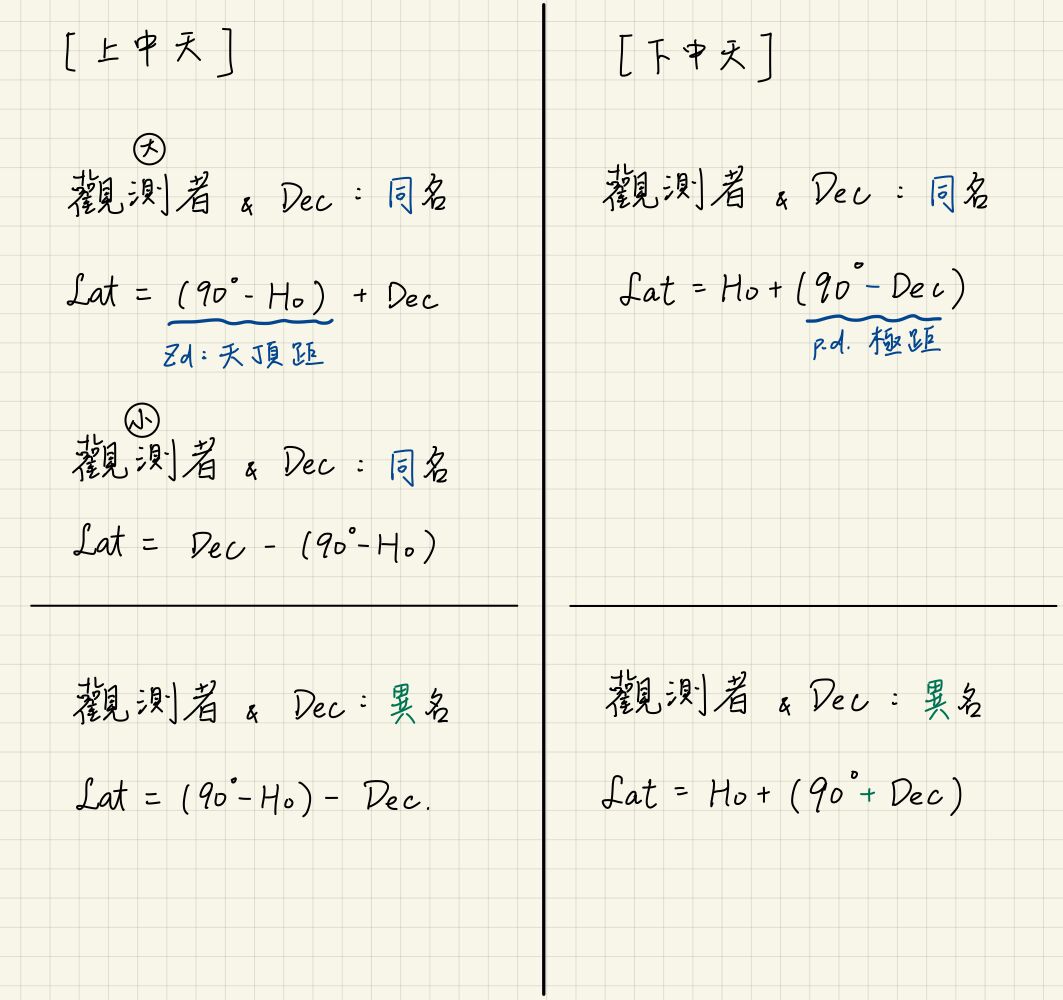 [上中天]
大
觀測者 & Dec : 同名
Lat = (90° - Ho) + Dec
Zd: 天頂距
小
觀測者 & Dec : 同名
Lat = Dec - (90° - Ho)
觀測者 & Dec : 異名
Lat = (90° - Ho) - Dec.
[下中天]
觀測者 & Dec : 同名
Lat = Ho + (90° - Dec)
p.d. 極距
觀測者 & Dec : 異名
Lat = Ho + (90° + Dec)